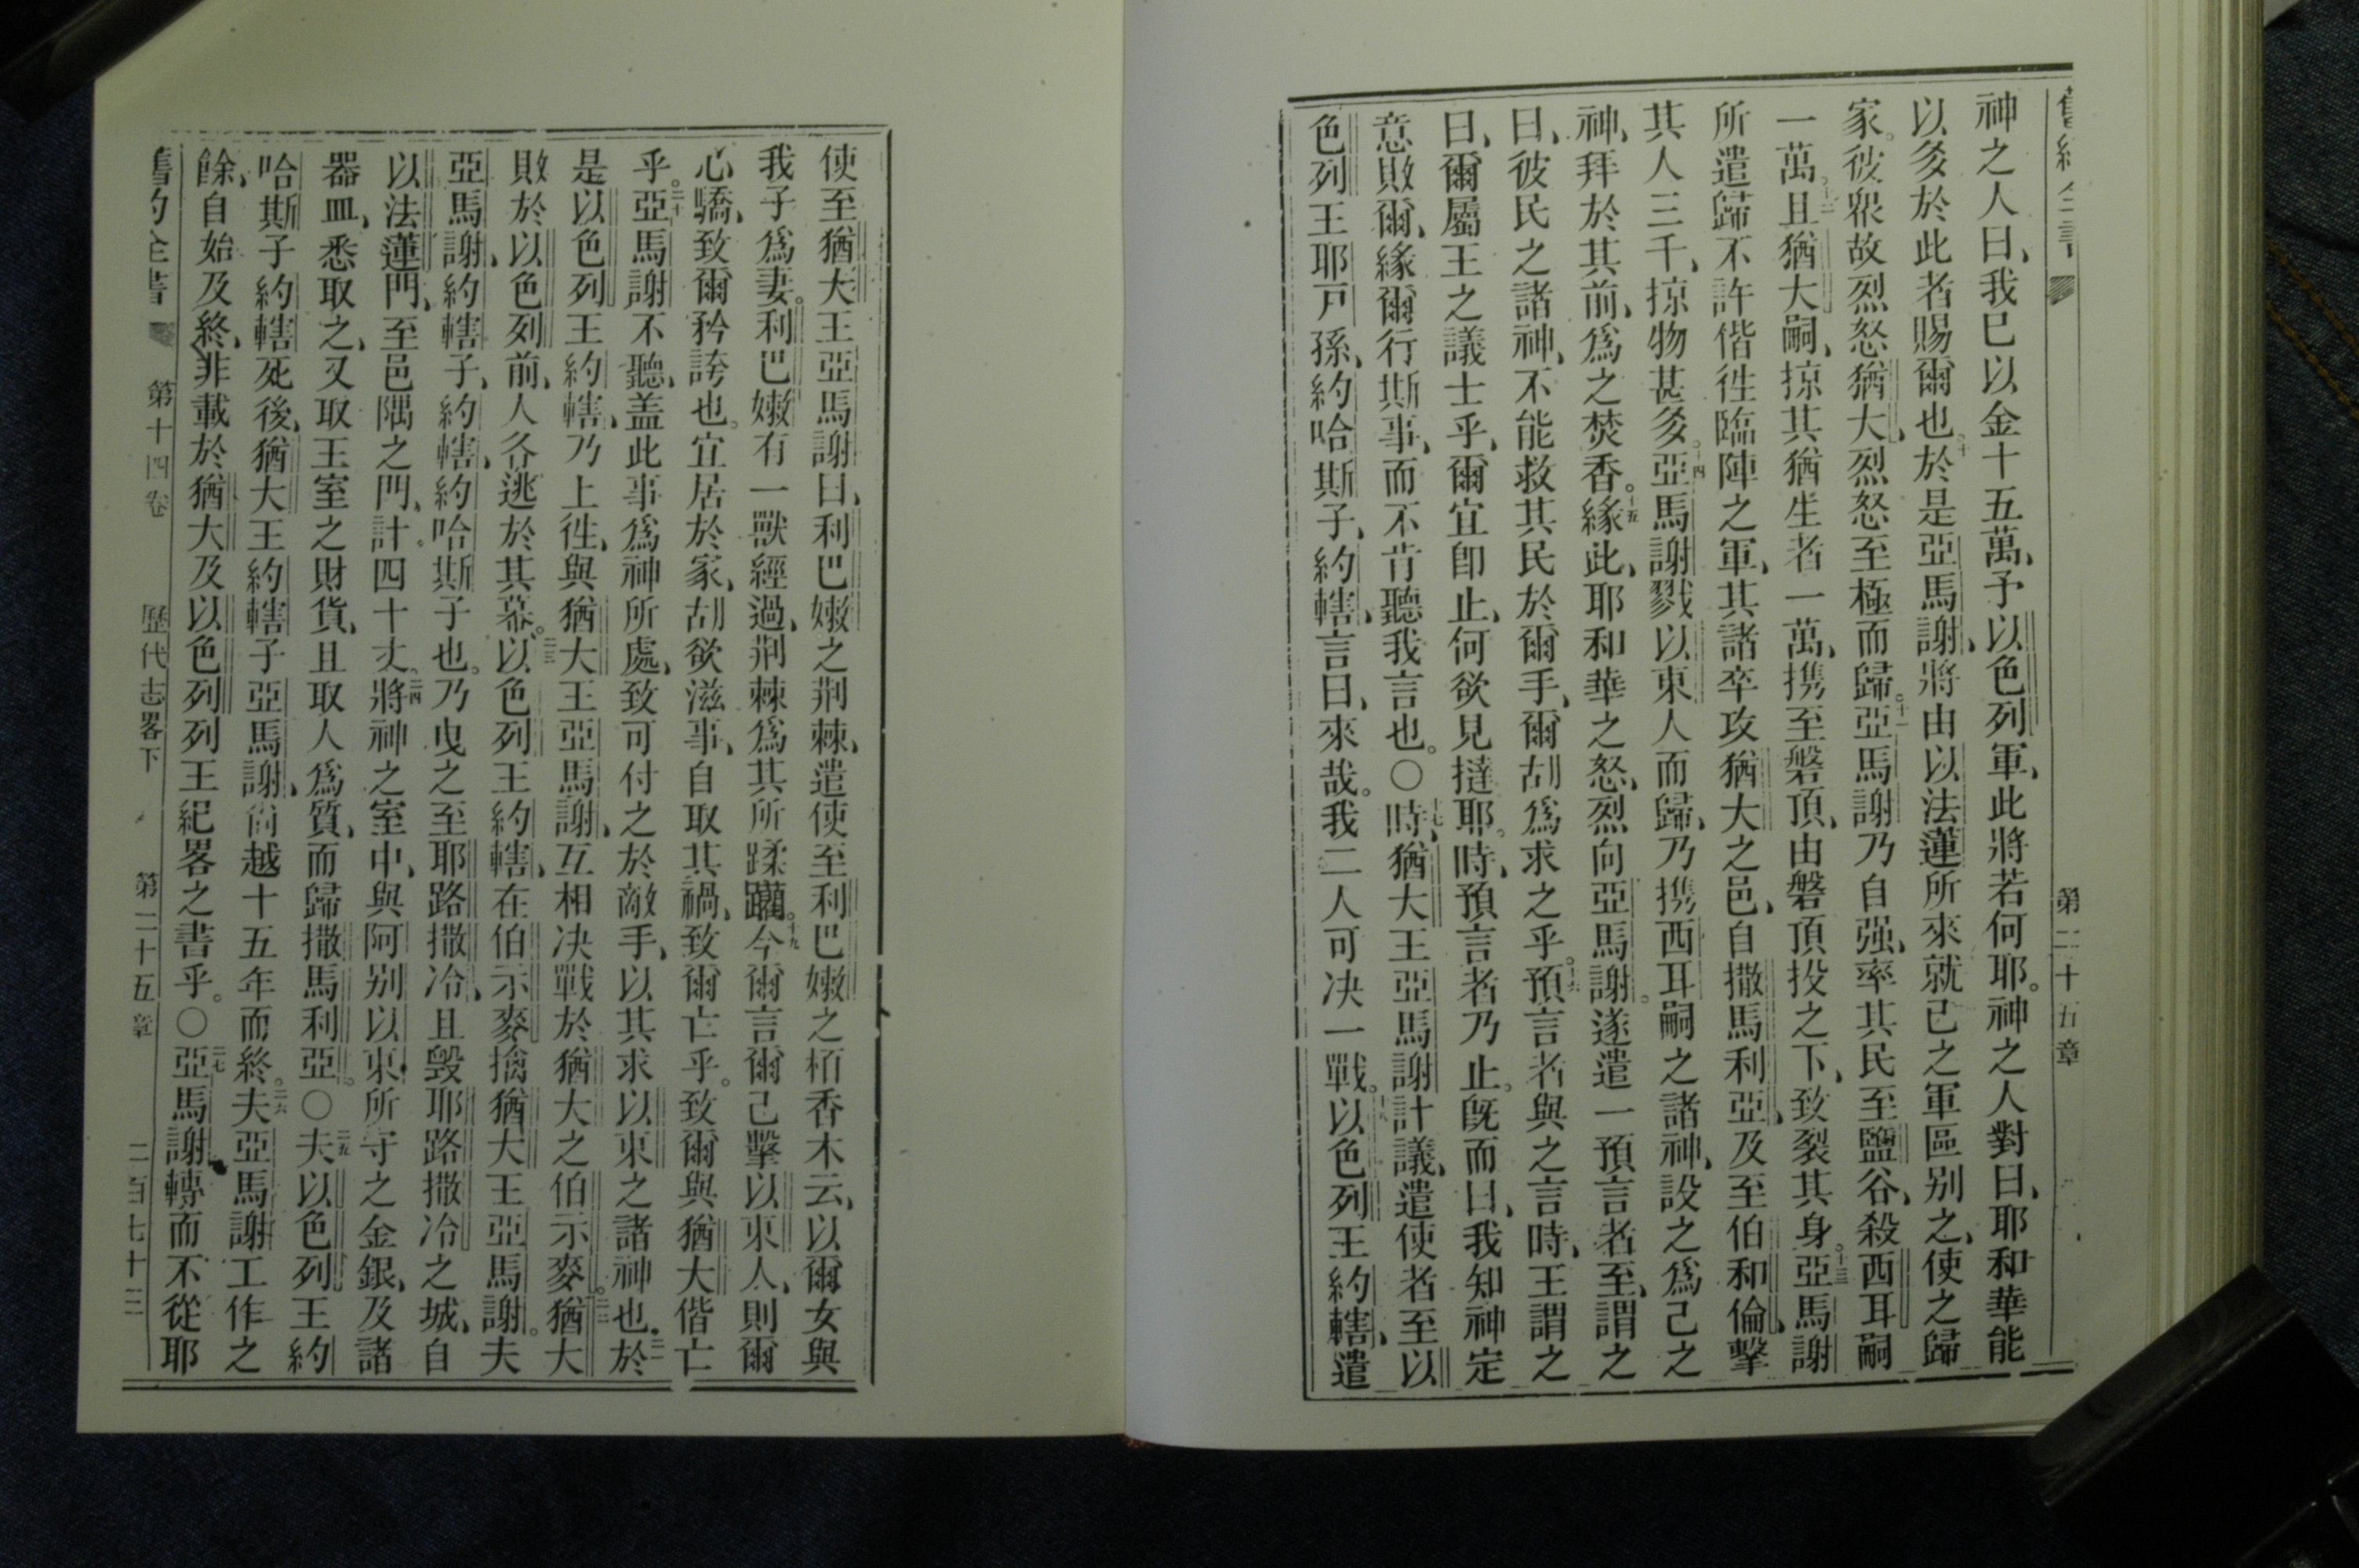 第二十五章
神之人曰、我巳以金十五萬、予以色列軍、此將若何耶。神之人對曰、耶和華能
以多於此者賜爾也。十於是亞馬謝、將由以法蓮所來就己之軍區別之、使之歸
家。彼衆故烈怒猶大、烈怒至極而歸。十一亞馬謝乃自强、率其民至鹽谷、殺西耳嗣
一萬。十二且猶大嗣、掠其猶生者一萬、携至磐頂、由磐頂投之下、致裂其身。十三亞馬謝
所遣歸不許偕徃臨陣之軍、其諸卒攻猶大之邑、自撒馬利亞、及至伯和倫、擊
其人三千、掠物甚多。十四亞馬謝戮以東人而歸、乃携西耳嗣之諸神、設之爲己之
神、拜於其前、爲之焚香。十五緣此、耶和華之怒、烈向亞馬謝。遂遣一預言者至、謂之
曰、彼民之諸神、不能救其民於爾手、爾胡爲求之乎。十六預言者與之言時、王謂之
曰、爾屬王之議士乎、爾宜卽止、何欲見撻耶。時、預言者乃止。旣而曰、我知神定
意敗爾、緣爾行斯事、而不肯聽我言也。○十七時、猶大王亞馬謝計議、遣使者至以
色列王耶戸孫、約哈斯子、約轄、言曰、來哉。我二人可决一戰。十八以色列王約轄、遣
使至猶大王亞馬謝曰、利巴嫩之荆棘、遣使至利巴嫩之栢香木云、以爾女與
我子爲妻。利巴嫩有一獸經過、荆棘爲其所蹂躪。十九今爾言爾己擊以東人、則爾
心驕、致爾矜誇也。宜居於家、胡欲滋事、自取其禍、致爾亡乎。致爾與猶大偕亡
乎。二十亞馬謝不聽、盖此事爲神所處、致可付之於敵手、以其求以東之諸神也。二一於
是以色列王約轄、乃上徃、與猶大王亞馬謝、互相决戰於猶大之伯示麥。二二猶大
敗於以色列前、人各逃於其幕。二三以色列王約轄、在伯示麥擒猶大王亞馬謝。夫
亞馬謝、約轄子、約轄、約哈斯子也。乃曳之至耶路撒冷、且毁耶路撒冷之城、自
以法蓮門、至邑隅之門、計。四十丈。二四將神之室中、與阿别以東所守之金銀、及諸
器皿、悉取之、又取王室之財貨、且取人爲質、而歸撒馬利亞。○二五夫以色列王約
哈斯子約轄死後、猶大王約轄子亞馬謝、尙越十五年而終。二六夫亞馬謝工作之
餘、自始及終、非載於猶大及以色列列王紀畧之書乎。○二七亞馬謝轉而不從耶
舊約全書 第十四卷 歷代志畧下 第二十五章 二百七十三